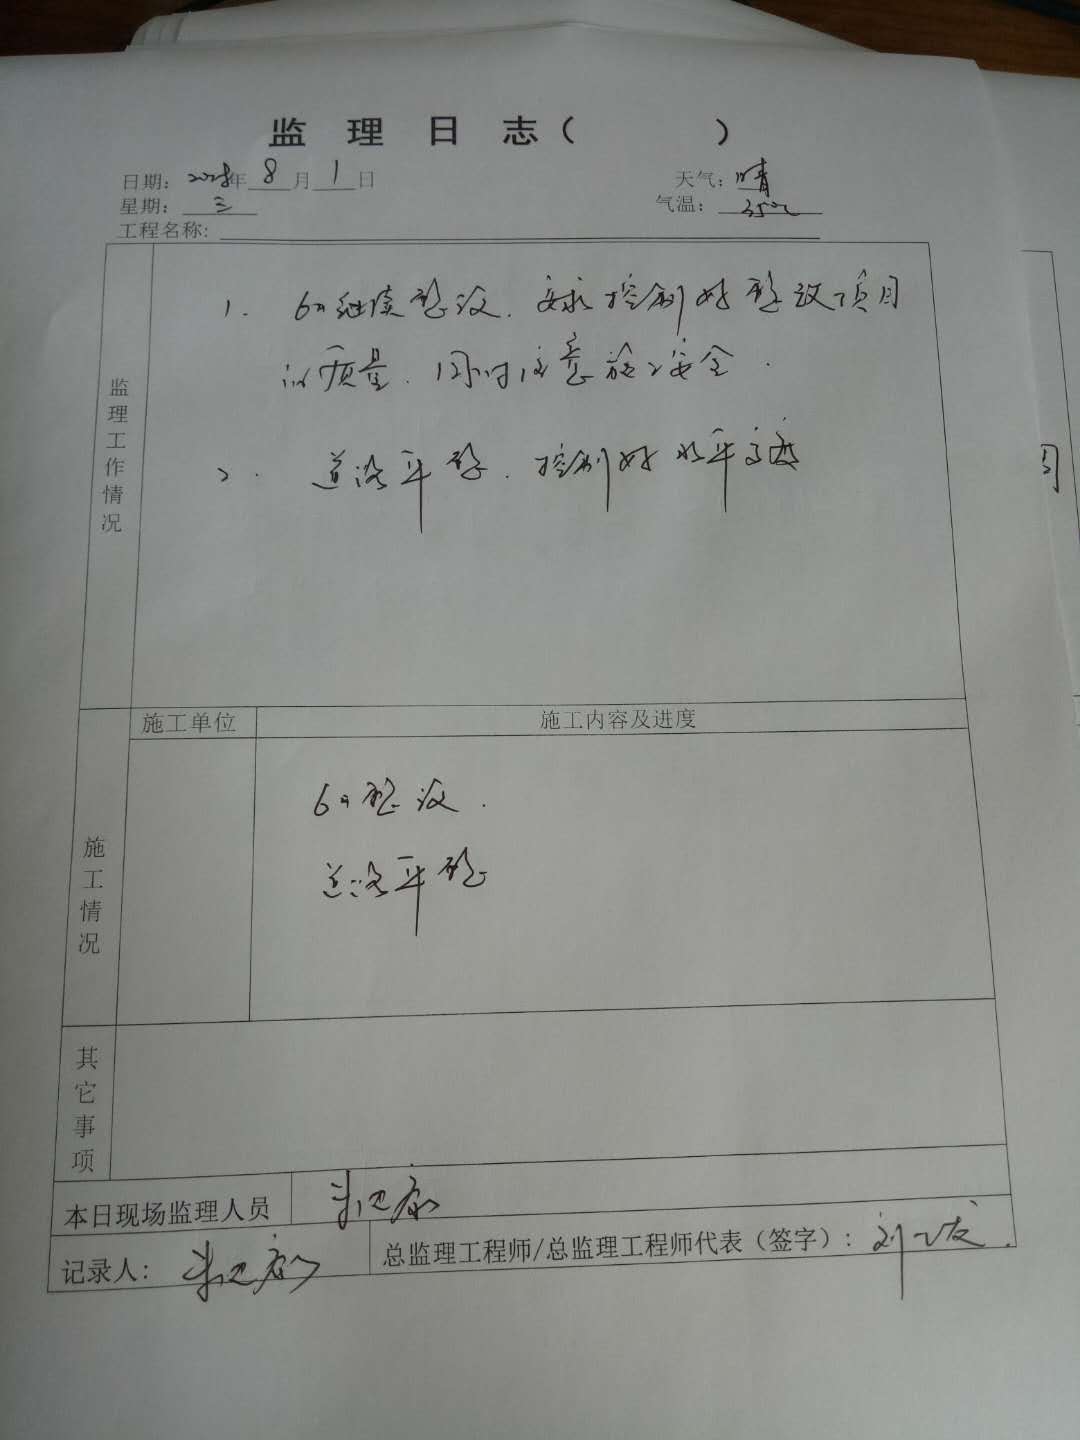 监 理 日 志（          ）
日期：2018年 8 月 1 日
天气：晴
星期：三
气温：35℃
工程名称：
监理工作情况
1. 6#继续整改，要求控制好整改项目
的质量，同时注意施工安全.
2. 道路平整，控制好水平高度
施工单位
施工内容及进度
施工情况
6#整改.
道路平整
其它事项
本日现场监理人员
记录人：
总监理工程师/总监理工程师代表（签字）：刘